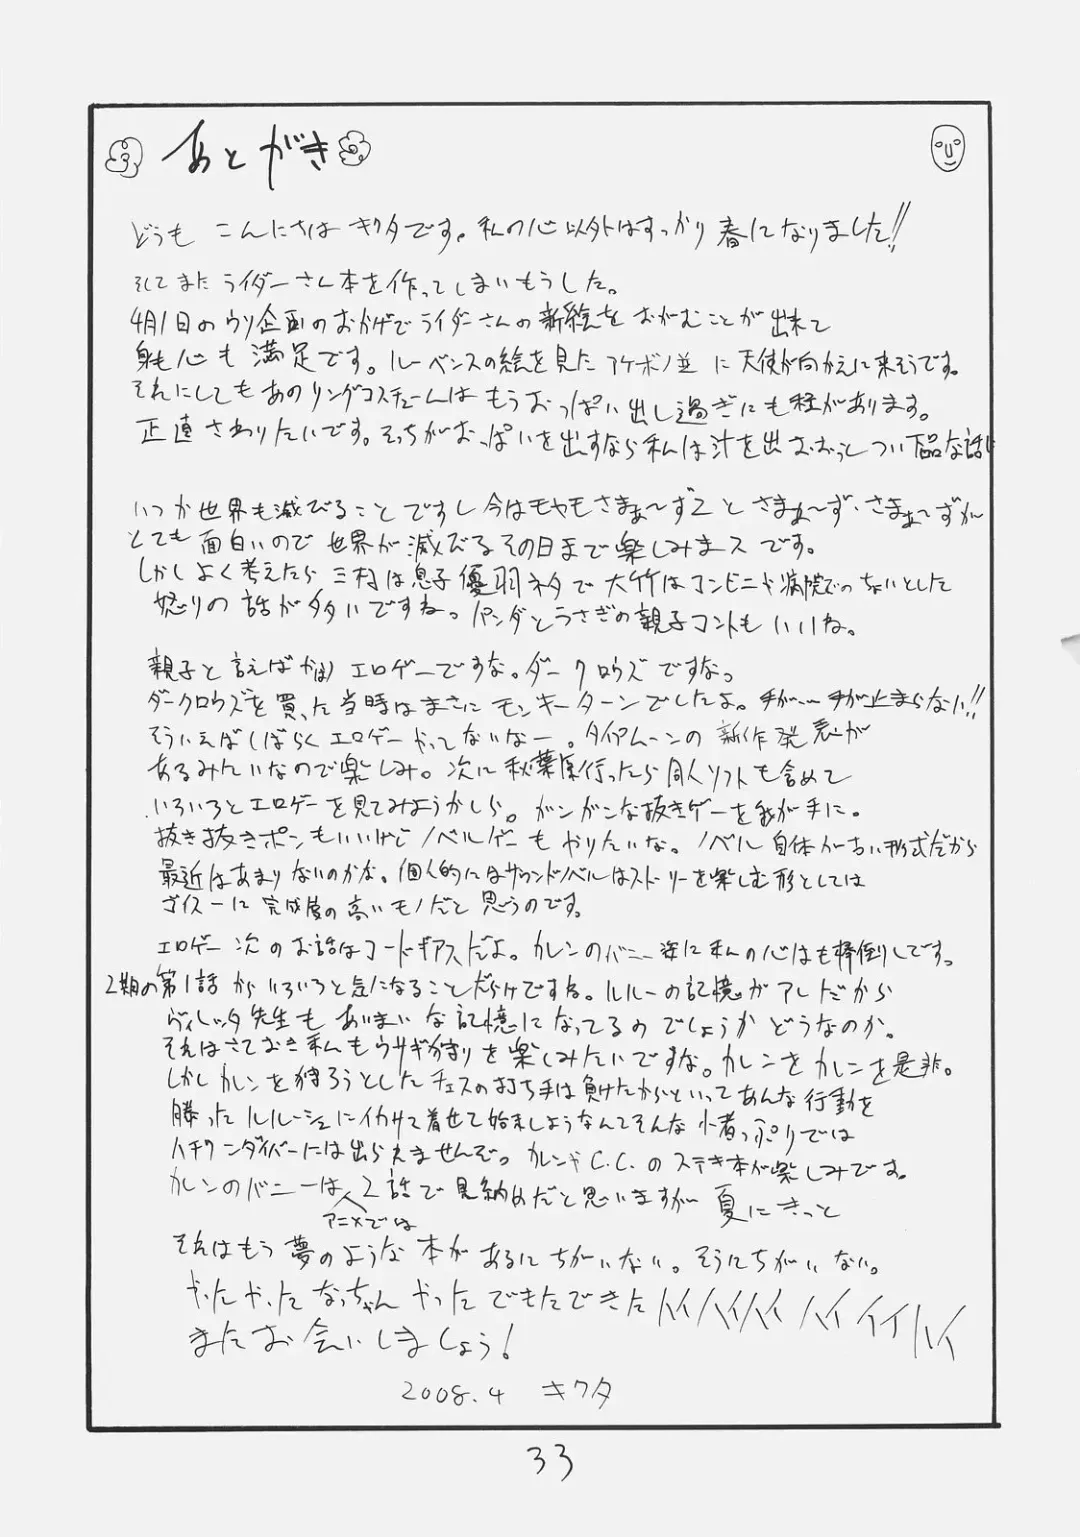 あとがき
どうも こんにちは キクタです。私の心以外はすっかり 春になりました!!
そしてまた ライダーさん本を作ってしまいもうした。
4月1日のウソ企画のおかげでライダーさんの新絵をおがむことが出来て
身も心も 満足です。ルーベンスの絵を見た アケボノ並に 天使が向かえに来そうです。
それにしてもあのリングコスチュームはもうおっぱい出し過ぎにも程があります。
正直さわりたいです。そっちがおっぱいを出すなら私は汁を出 おおっと つい下品な話に
いつか世界も滅びることですし今はモヤモヤさまぁ〜ず2と さまぁ〜ず・さまぁ〜ずが
とても 面白いので 世界が滅びるその日まで楽しみまス です。
しかしよく考えたら 三村は息子 優羽ネタで 大竹は コンビニや病院でのちょいとした
怒りの 話が多いですね。パンダとうさぎの親子コントもいいね。
親子と言えばやはり エロゲーですな。ダークロウズですな。
ダークロウズを買った当時はまさに モンキーターンでしたよ。手が……手が止まらない!!
そういえばしばらくエロゲーやってないなー。タイアムーンの 新作発表が
あるみたいなので楽しみ。次に秋葉原行ったら同人ソフトも含めて
いろいろとエロゲーを見てみようかしら。ガンガンな抜きゲーを我が手に。
抜き抜きポンもいいけどノベルゲーもやりたいな。ノベル自体が古い形式だから
最近はあまりないのかな。個人的にはサウンドノベルはストーリーを楽しむ形としては
ゴイスーに 完成度の高いモノだと 思うのです。
エロゲー 次のお話はコードギアスだよ。カレンのバニー姿に私の心はも棒倒しです。
2期の第1話から いろいろと気になることだらけですね。ルルーの記憶がアレだから
ヴィレッタ先生も あいまいな記憶になってるのでしょうか どうなのか。
それはさておき私もウサギ狩りを楽しみたいですな。カレンをカレンを是非。
しかしカレンを狩ろうとしたチェスの打ち手は 負けたからといってあんな行動を
勝ったルルーシュにイカサマ着せて始末しようなんてそんな小者っぷりでは
ハチワンダイバーには出られませんぞ。カレンやC.C.のステキ本が楽しみです。
カレンのバニーは2話で見納めだと思いますが 夏にきっと
アニメでは
それはもう夢のような本があるにちがいない。そうにちがいない。
やったやった なっちゃん やった できたできた ハイ ハイ ハイ ハイ イイ ハイ
またお会いしましょう!
2008.4 キクタ
33